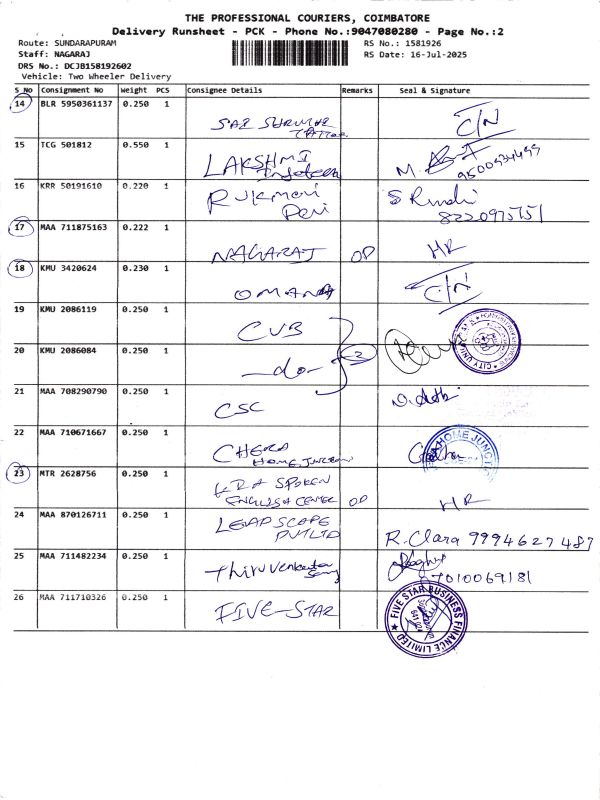 THE PROFESSIONAL COURIERS, COIMBATORE
Delivery Runsheet - PCK - Phone No.:9047080280 - Page No.:2
Route: SUNDARAPURAM RS No.: 1581926
Staff: NAGARAJ RS Date: 16-Jul-2025
DRS No.: DCJB158192602
Vehicle: Two Wheeler Delivery
S No Consignment No Weight PCS Consignee Details Remarks Seal & Signature
14 BLR 5950361137 0.250 1 C/N
15 TCG 501812 0.550 1 LAKSHMI
16 KRR 50191610 0.220 1 RUKMANI DEVI 8220975751
17 MAA 711875163 0.222 1 NAGARAJ OP HR
18 KMU 3420624 0.230 1 OMANA C/N
19 KMU 2086119 0.250 1 CUB
20 KMU 2086084 0.250 1 -do- 2
21 MAA 708290790 0.250 1 CSC
22 MAA 710671667 0.250 1 CHERA HOME JUNCTION HOME JUNCTION
23 MTR 2628756 0.250 1 SPOKEN ENGLISH CENTER OP HR
24 MAA 870126711 0.250 1 LEAP SCOPE PVT LTD R. Clara 9994627487
25 MAA 711482234 0.250 1 Thiru Venkata 7010069181
26 MAA 711710326 0.250 1 FIVE-STAR FIVE STAR BUSINESS FINANCE LIMITED